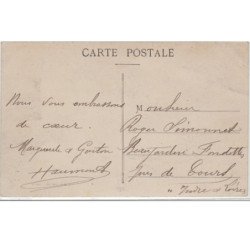 CARTE POSTALE
Nous vous embrassons
de cœur.
Marguerite & Gaston
Monsieur
Roger Simonnet
Beaujardin
Près de Tours
Indre et Loire